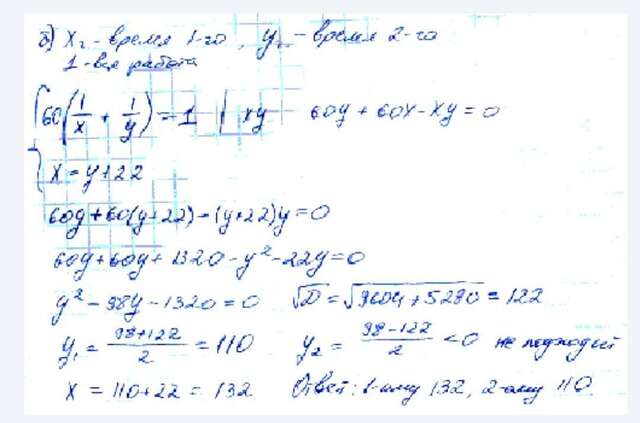 б) x₂ - время 1-го, y₂ - время 2-го
1 - вся работа
60(1/x + 1/y) = 1 | xy 60y + 60x - xy = 0
x = y + 22
60y + 60(y+22) - (y+22)y = 0
60y + 60y + 1320 - y² - 22y = 0
y² - 98y - 1320 = 0 √D = √9604 + 5280 = 122
y₁ = 98+122/2 = 110 y₂ = 98-122/2 < 0 не подходит
x = 110 + 22 = 132 Ответ: 1-ому 132, 2-ому 110.